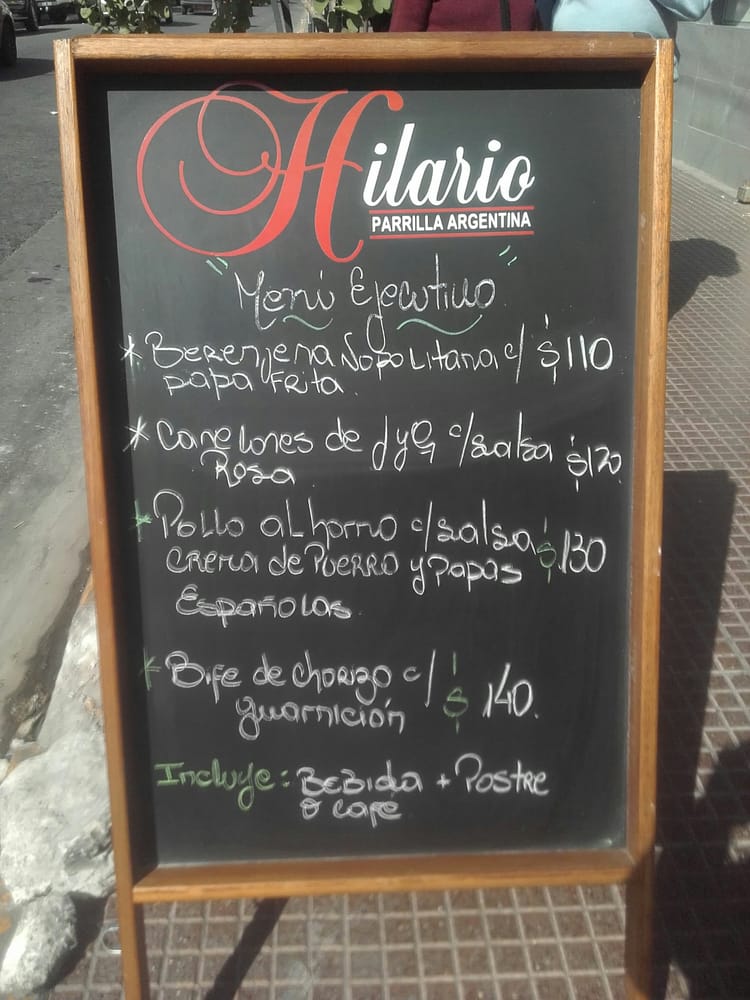 Hilario
PARRILLA ARGENTINA
"Menú Ejecutivo"
* Berenjena Napolitana c/ $110
papa Frita.
* Canelones de JyQ c/salsa $120
Rosa.
* Pollo al horno c/salsa $130
crema de Puerro y Papas
Españolas.
* Bife de chorizo c/ $140.
guarnición
Incluye: Bebida + Postre
o cafe